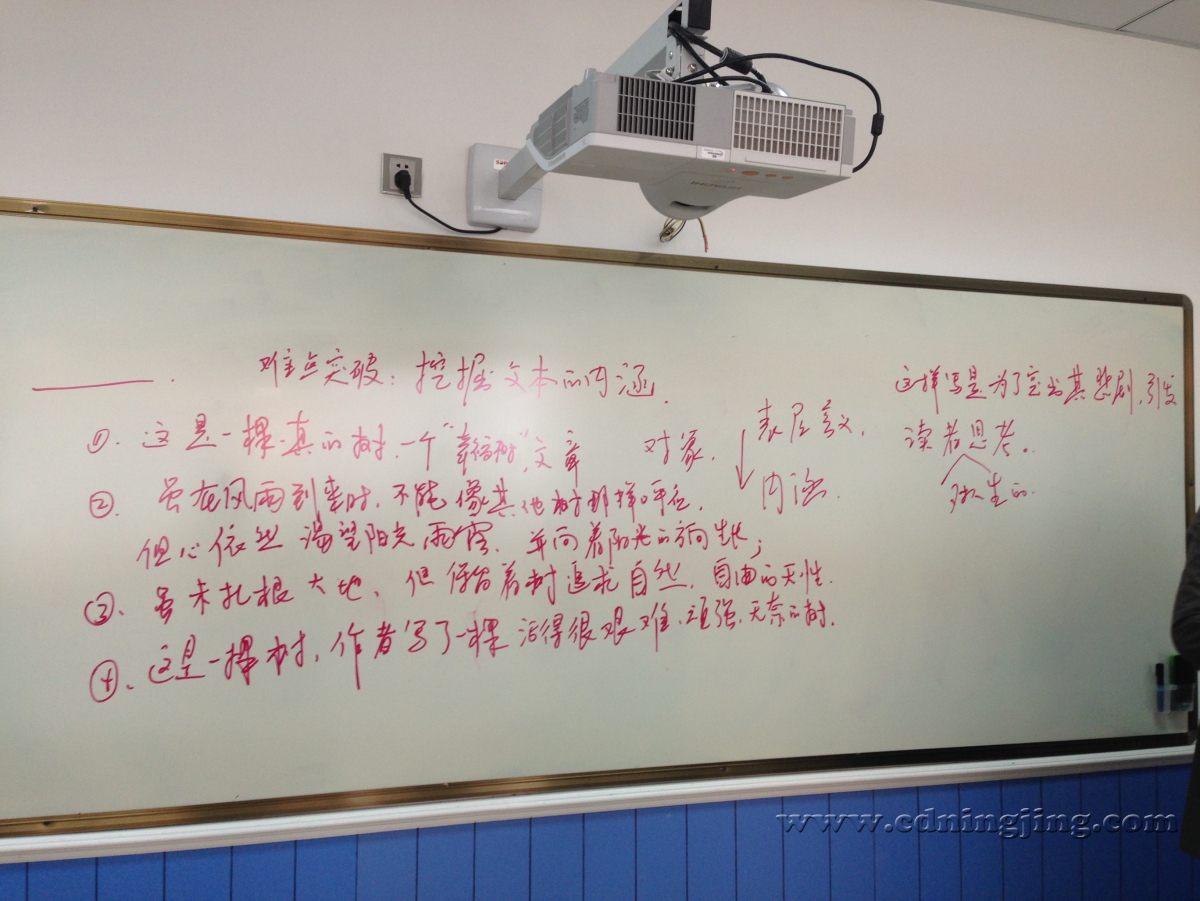 难点突破：挖掘文本的内涵.
①. 这是一棵真的树，一个"幸福树"，文章 对象.
②. 虽在风雨到来时，不能像其他树那样呼应，
但心依然渴望阳光雨露，并向着阳光的方向生长；
③. 虽未扎根大地、但保留着树追求自然、自由的天性.
④、这是一棵树，作者写了一棵活得很艰难、顽强、无奈的树.
表层意义，
内涵.
这样写是为了突出其悲剧，引发
读者思考。
对人生的.
www.cdningjing.com